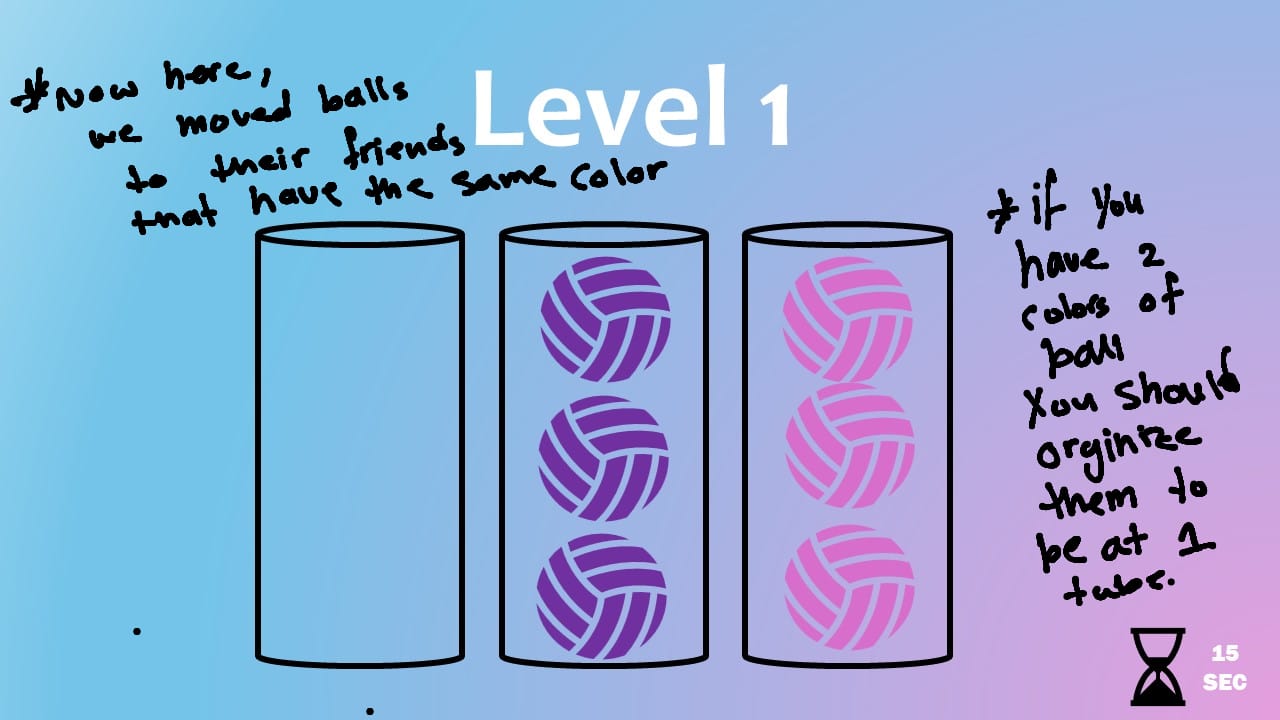 Level 1
*Now here,
we moved balls
to their friends
that have the same color
* if you
have 2
colors of
ball
You should
orginize
them to
be at 1
tube.
15
SEC